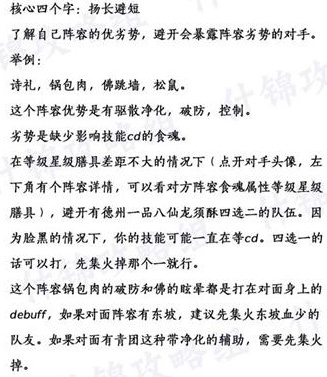 核心四个字：扬长避短
了解自己阵容的优劣势，避开会暴露阵容劣势的对手。
举例：
诗礼，锅包肉，佛跳墙，松鼠。
这个阵容优势是有驱散净化，破防，控制。
劣势是缺少影响技能cd的食魂。
在等级星级膳具差距不大的情况下（点开对手头像，左
下角有个阵容详情，可以看对方阵容食魂属性等级星级
膳具），避开有德州一品八仙龙须酥四选二的队伍。因
为脸黑的情况下，你的技能可能一直在等cd。四选一的
话可以打，先集火掉那个一就行。
这个阵容锅包肉的破防和佛的眩晕都是打在对面身上的
debuff，如果对面阵容有东坡，建议先集火东坡血少的
队友。如果对面有青团这种带净化的辅助，需要先集火
掉。
什锦攻略组